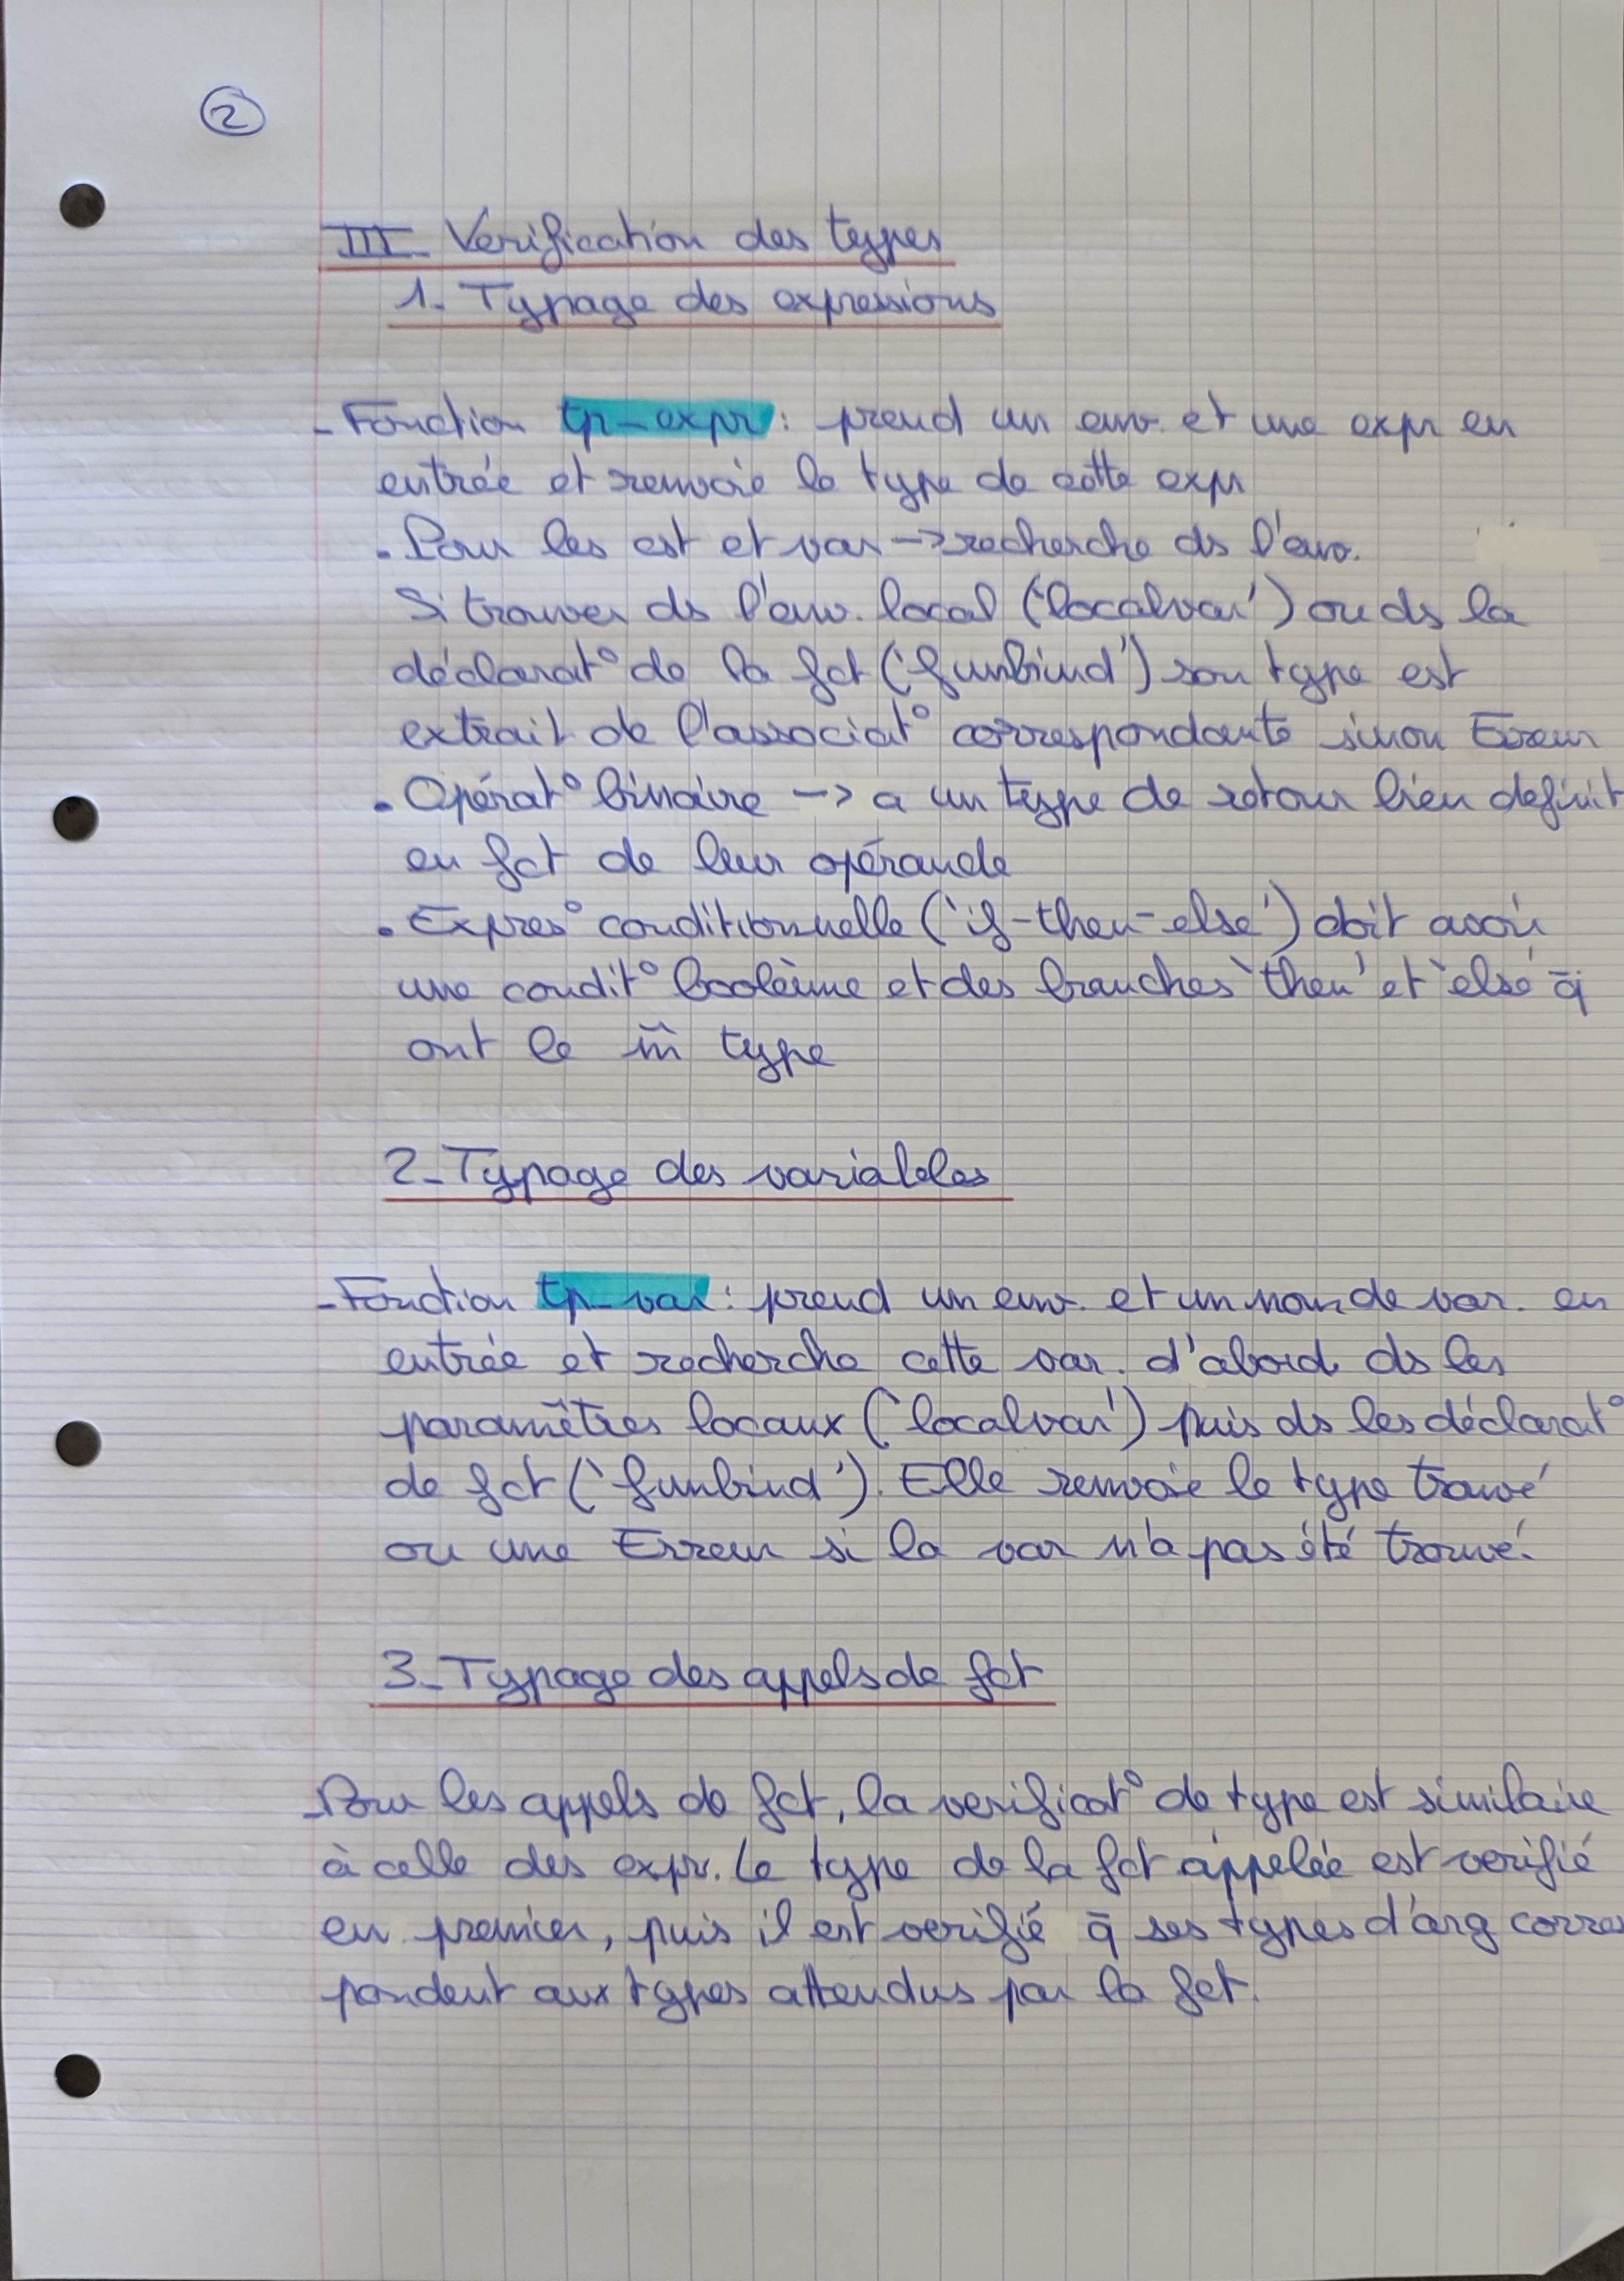 2
III - Vérification des types
1 - Typage des expressions
- Fonction tp-expr : prend un env. et une expr en
entrée et renvoie le type de cette expr
. Pour les cst et var -> recherche ds l'env.
Si trouver ds l'env. local ('localvar') ou ds la
déclarat° de la fct ('funbind') son type est
extrait de l'associat° correspondante sinon Erreur
. Opérat° binaire -> a un type de retour bien definit
en fct de leur opérande
. Expres° conditionnelle ('if-then-else') doit avoir
une condit° booléene et des branches 'then' et 'else' q̄
ont le m̃ type
2 - Typage des variables
- Fonction tp-var : prend un env. et un nom de var. en
entrée et recherche cette var. d'abord ds les
paramètres locaux ('localvar') puis ds les déclarat°
de fct ('funbind'). Elle renvoie le type trouvé
ou une Erreur si la var n'a pas été trouvé.
3 - Typage des appels de fct
- Pour les appels de fct, la verificat° de type est similaire
à celle des expr. Le type de la fct appelée est verifié
en premier, puis il est verifié q̄ ses types d'arg corres
pondent aux types attendus par la fct.